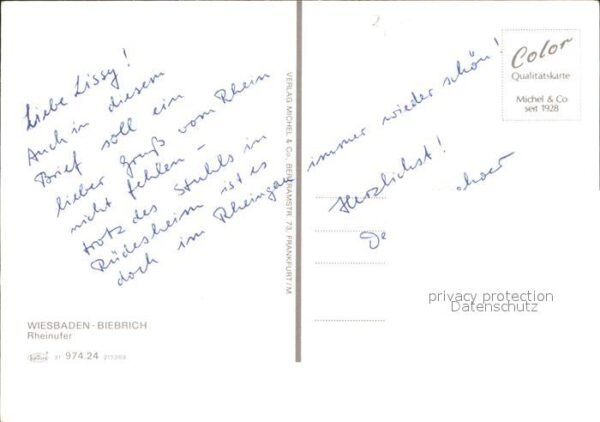 Liebe Lissy!
Auch in diesem
Brief soll ein
lieber Gruß vom Rhein
nicht fehlen -
trotz des Stuhls in
Rüdesheim ist es
doch im Rheingau immer wieder schön!
Herzlichst!
VERLAG MICHEL & Co., BERGRAMSTR. 73, FRANKFURT/M.
Color
Qualitätskarte
Michel & Co
seit 1928
privacy protection
Datenschutz
WIESBADEN - BIEBRICH
Rheinufer
31 974.24